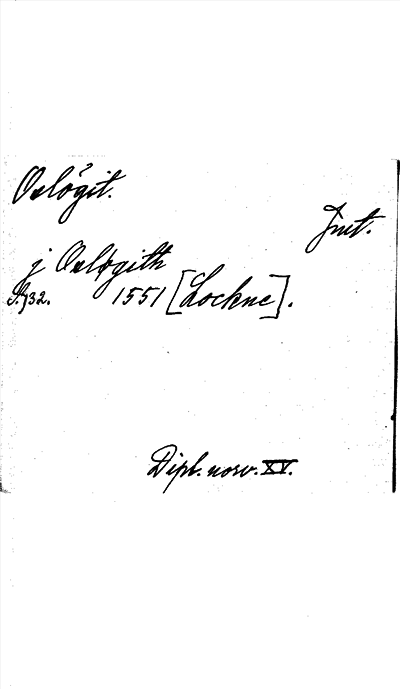 Oxlögit.
Jmt.
j Oxlögith
S. 732. 1551 [Lockne].
Dipl. norv. XV.